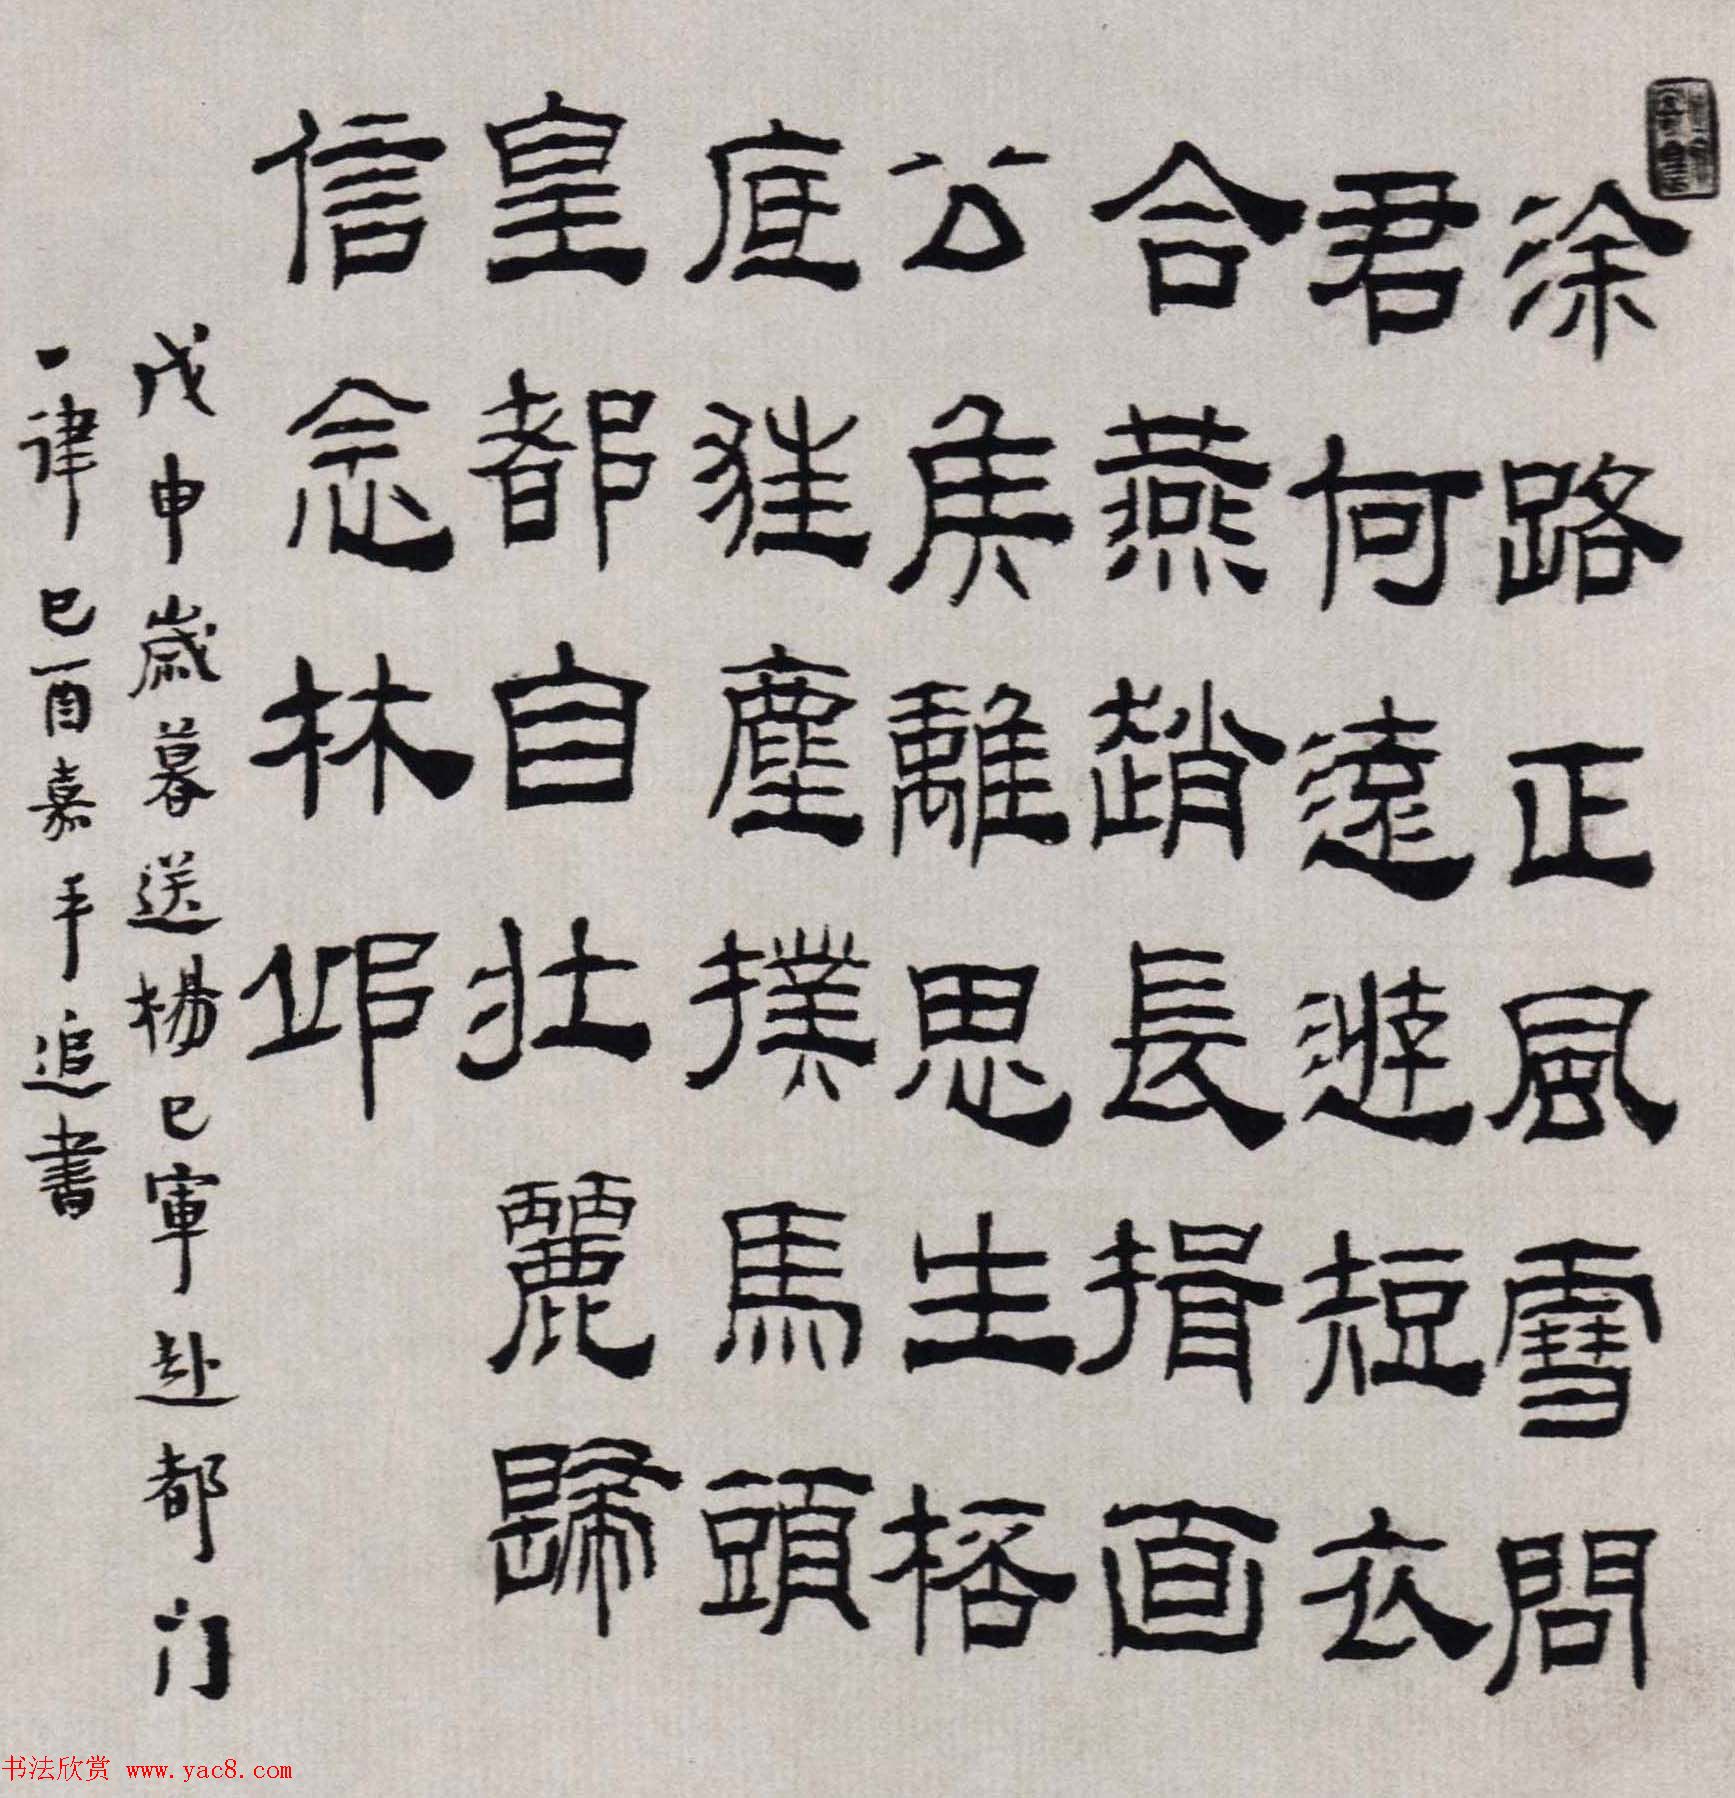 涂路正風雪問
君何遠遊短衣
合燕趙長揖面
公侯離思生桮
底狂塵撲馬頭
皇都自壯麗歸
信念林邱
戊申歲暮送楊己軍赴都门
一律 己酉嘉平追書
书法欣赏 www.yac8.com